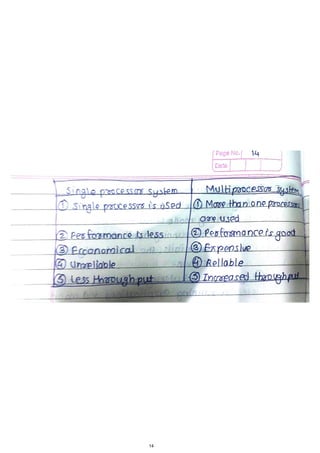 Page No. 14
Date
Single processor system | Multiprocessor system
① Single processor is used | ① More than one processor
are used
② Performance is less | ② Performance is good
③ Economical | ③ Expensive
④ Unreliable | ④ Reliable
⑤ Less Through put | ⑤ Increased throughput
14